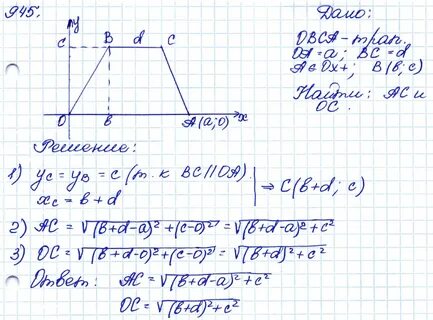 945.
y
c
B
d
C
O
в
A(a;0)
x
Дано:
OBCA-трап.
OA=a; BC=d
A∈Ox+; B(в;c)
Найти: AC и
OC.
Решение:
1) yc=yв=c (т.к BC||OA).
xc=в+d
⇒ C(в+d; c)
2) AC=√(в+d-a)²+(c-0)²=√(в+d-a)²+c²
3) OC=√(в+d-0)²+(c-0)²=√(в+d)²+c²
Ответ: AC=√(в+d-a)²+c²
OC=√(в+d)²+c²